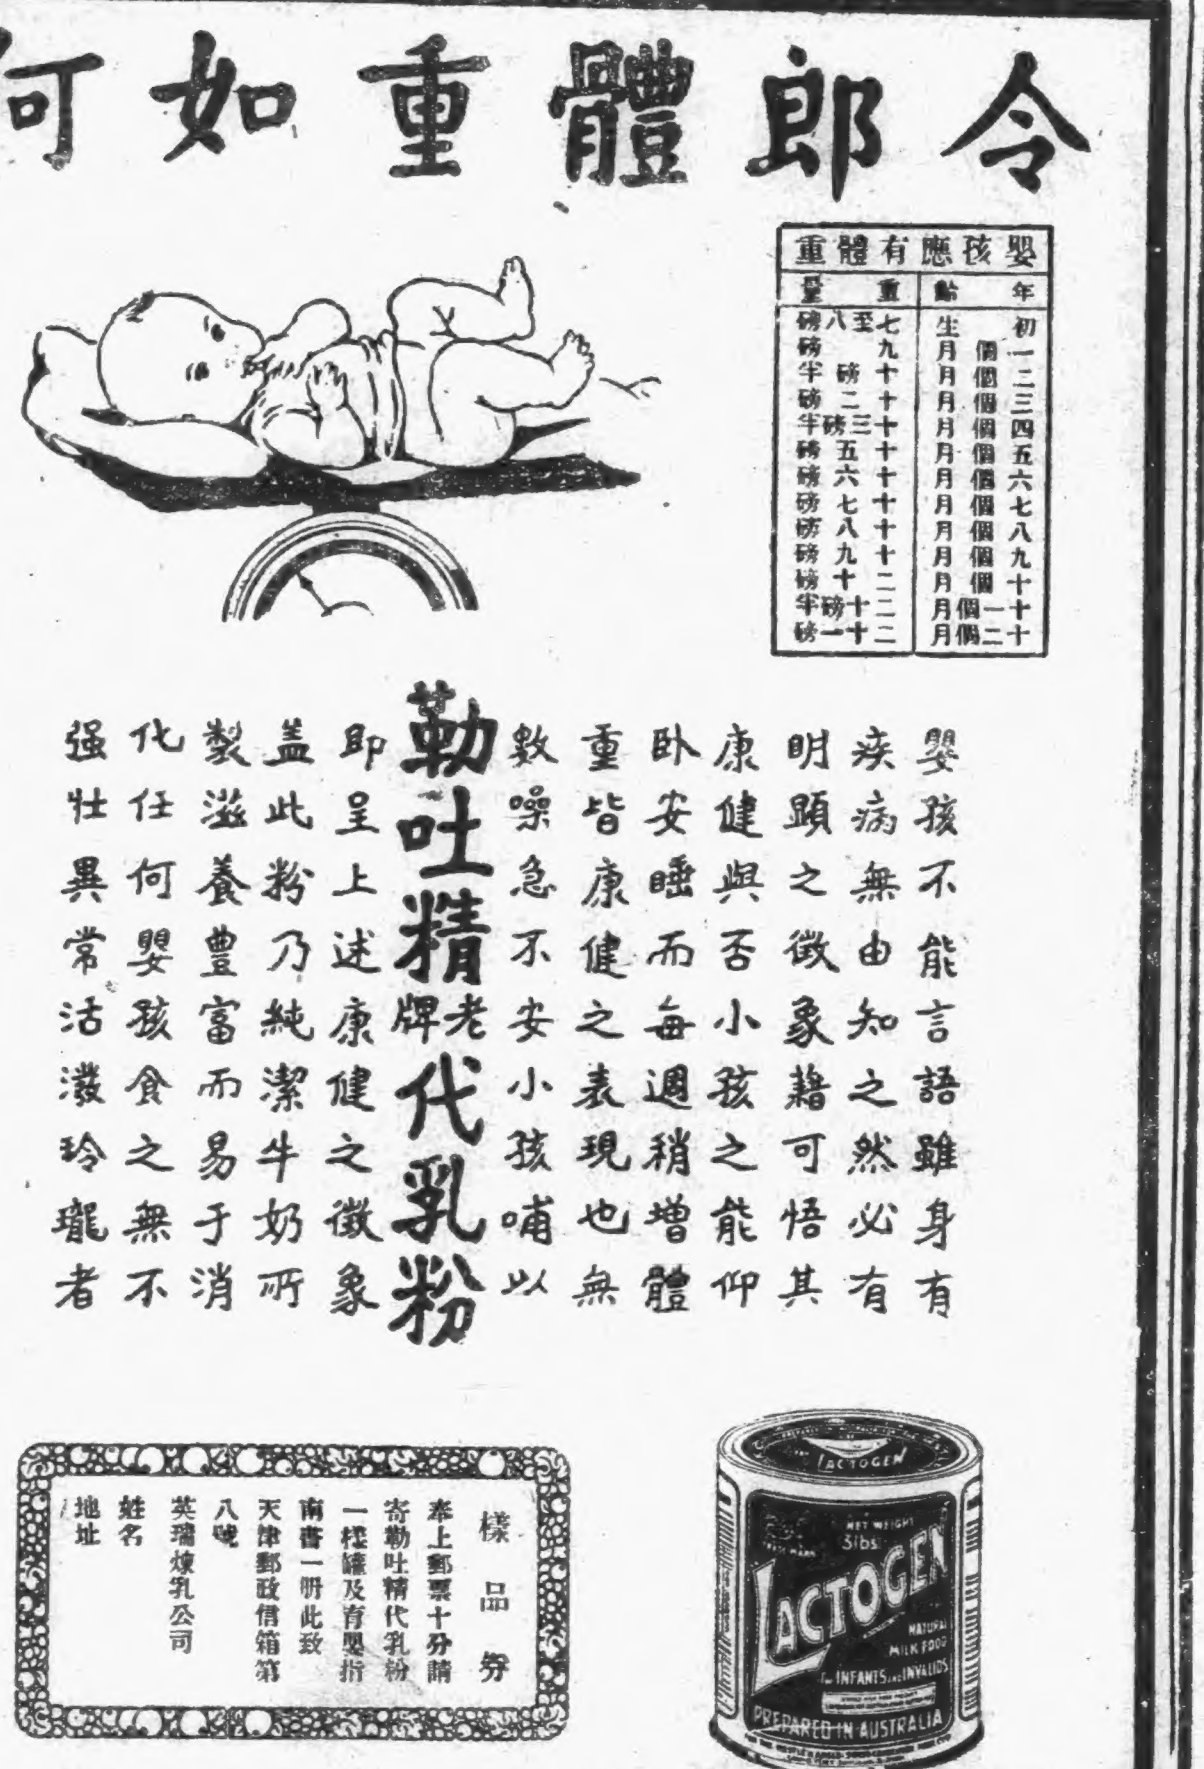 令郎體重如何
嬰孩應有體重
年齡 重量
初生 七至八磅
一個月 九磅
二個月 十磅半
三個月 十二磅
四個月 十三磅半
五個月 十五磅
六個月 十六磅
七個月 十七磅
八個月 十八磅
九個月 十九磅
十個月 二十磅
十一個月 二十磅半
十二個月 二十一磅
嬰孩不能言語雖身有
疾病無由知之然必有
明顕之徵象藉可悟其
康健與否小孩之能仰
卧安睡而每週稍增體
重皆康健之表現也無
數噪急不安小孩哺以
勒吐精老牌代乳粉
即呈上述康健之徵象
盖此粉乃純潔牛奶所
製滋養豊富而易于消
化任何嬰孩食之無不
强壯異常活潑玲瓏者
LACTOGEN
NET WEIGHT
5lbs.
TRADE MARK
LACTOGEN
NATURAL
MILK FOOD
FOR INFANTS AND INVALIDS
PREPARED IN AUSTRALIA
樣品券
奉上郵票十分請
寄勒吐精代乳粉
一樣罐及育嬰指
南書一册此致
天津郵政信箱第
八號
英瑞煉乳公司
姓名
地址